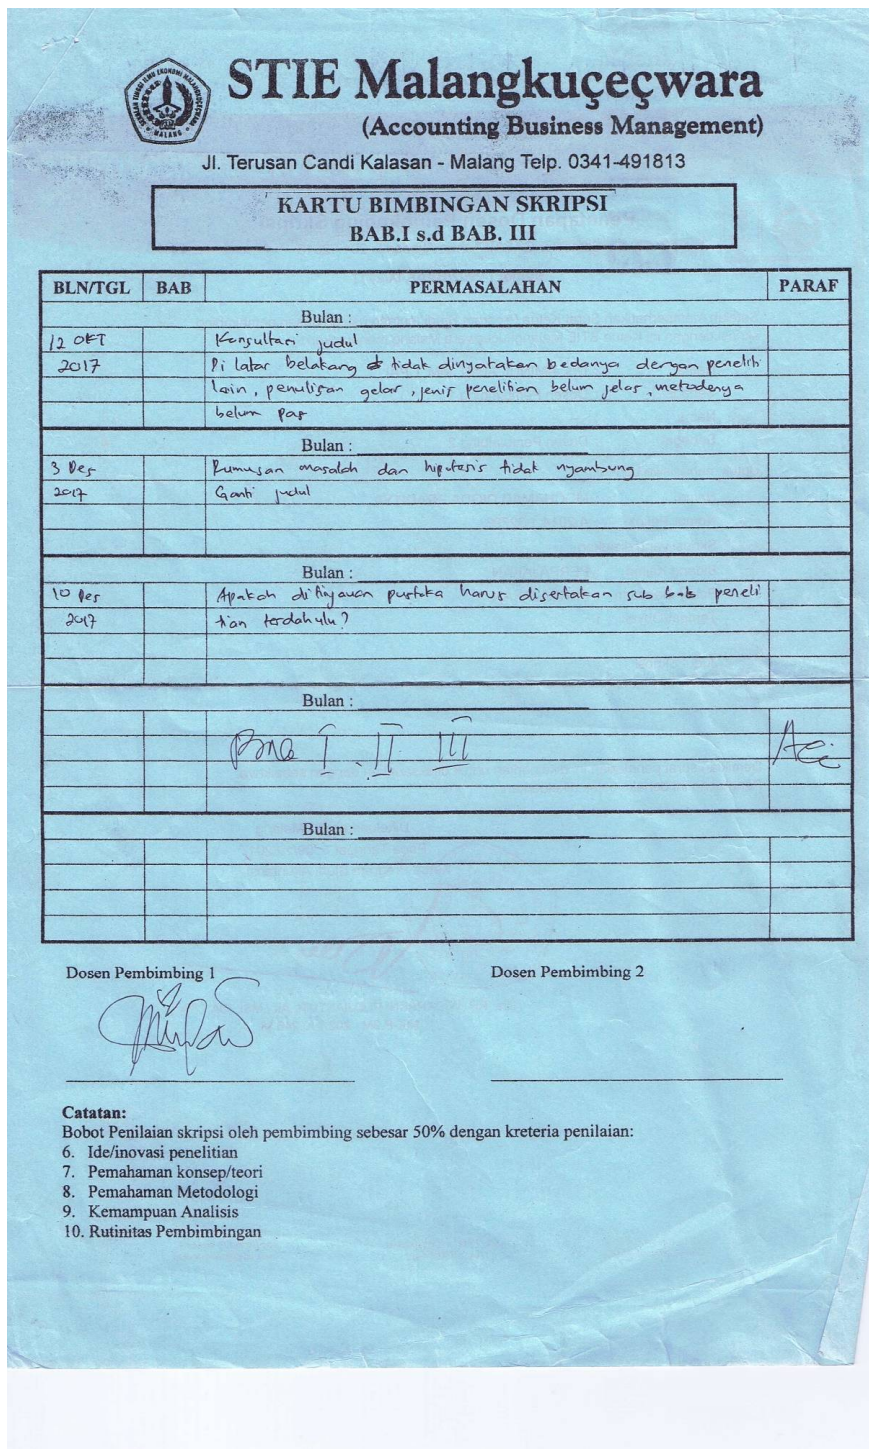 STIE Malangkuçeçwara
(Accounting Business Management)
Jl. Terusan Candi Kalasan - Malang Telp. 0341-491813
KARTU BIMBINGAN SKRIPSI
BAB.I s.d BAB. III
BLN/TGL BAB PERMASALAHAN PARAF
Bulan :
12 OKT Konsultasi judul
2017 Di latar belakang tidak dinyatakan bedanya dengan peneliti
lain, penulisan gelar, jenis penelitian belum jelas, metodenya
belum pas
Bulan :
3 Des Rumusan masalah dan hipotesis tidak nyambung
2017 Ganti judul
Bulan :
10 Des Apakah ditinjauan pustaka harus disertakan sub bab peneli
2017 tian terdahulu?
Bulan :
I . II III
Acc
Bulan :
Dosen Pembimbing 1 Dosen Pembimbing 2
Catatan:
Bobot Penilaian skripsi oleh pembimbing sebesar 50% dengan kreteria penilaian:
6. Ide/inovasi penelitian
7. Pemahaman konsep/teori
8. Pemahaman Metodologi
9. Kemampuan Analisis
10. Rutinitas Pembimbingan